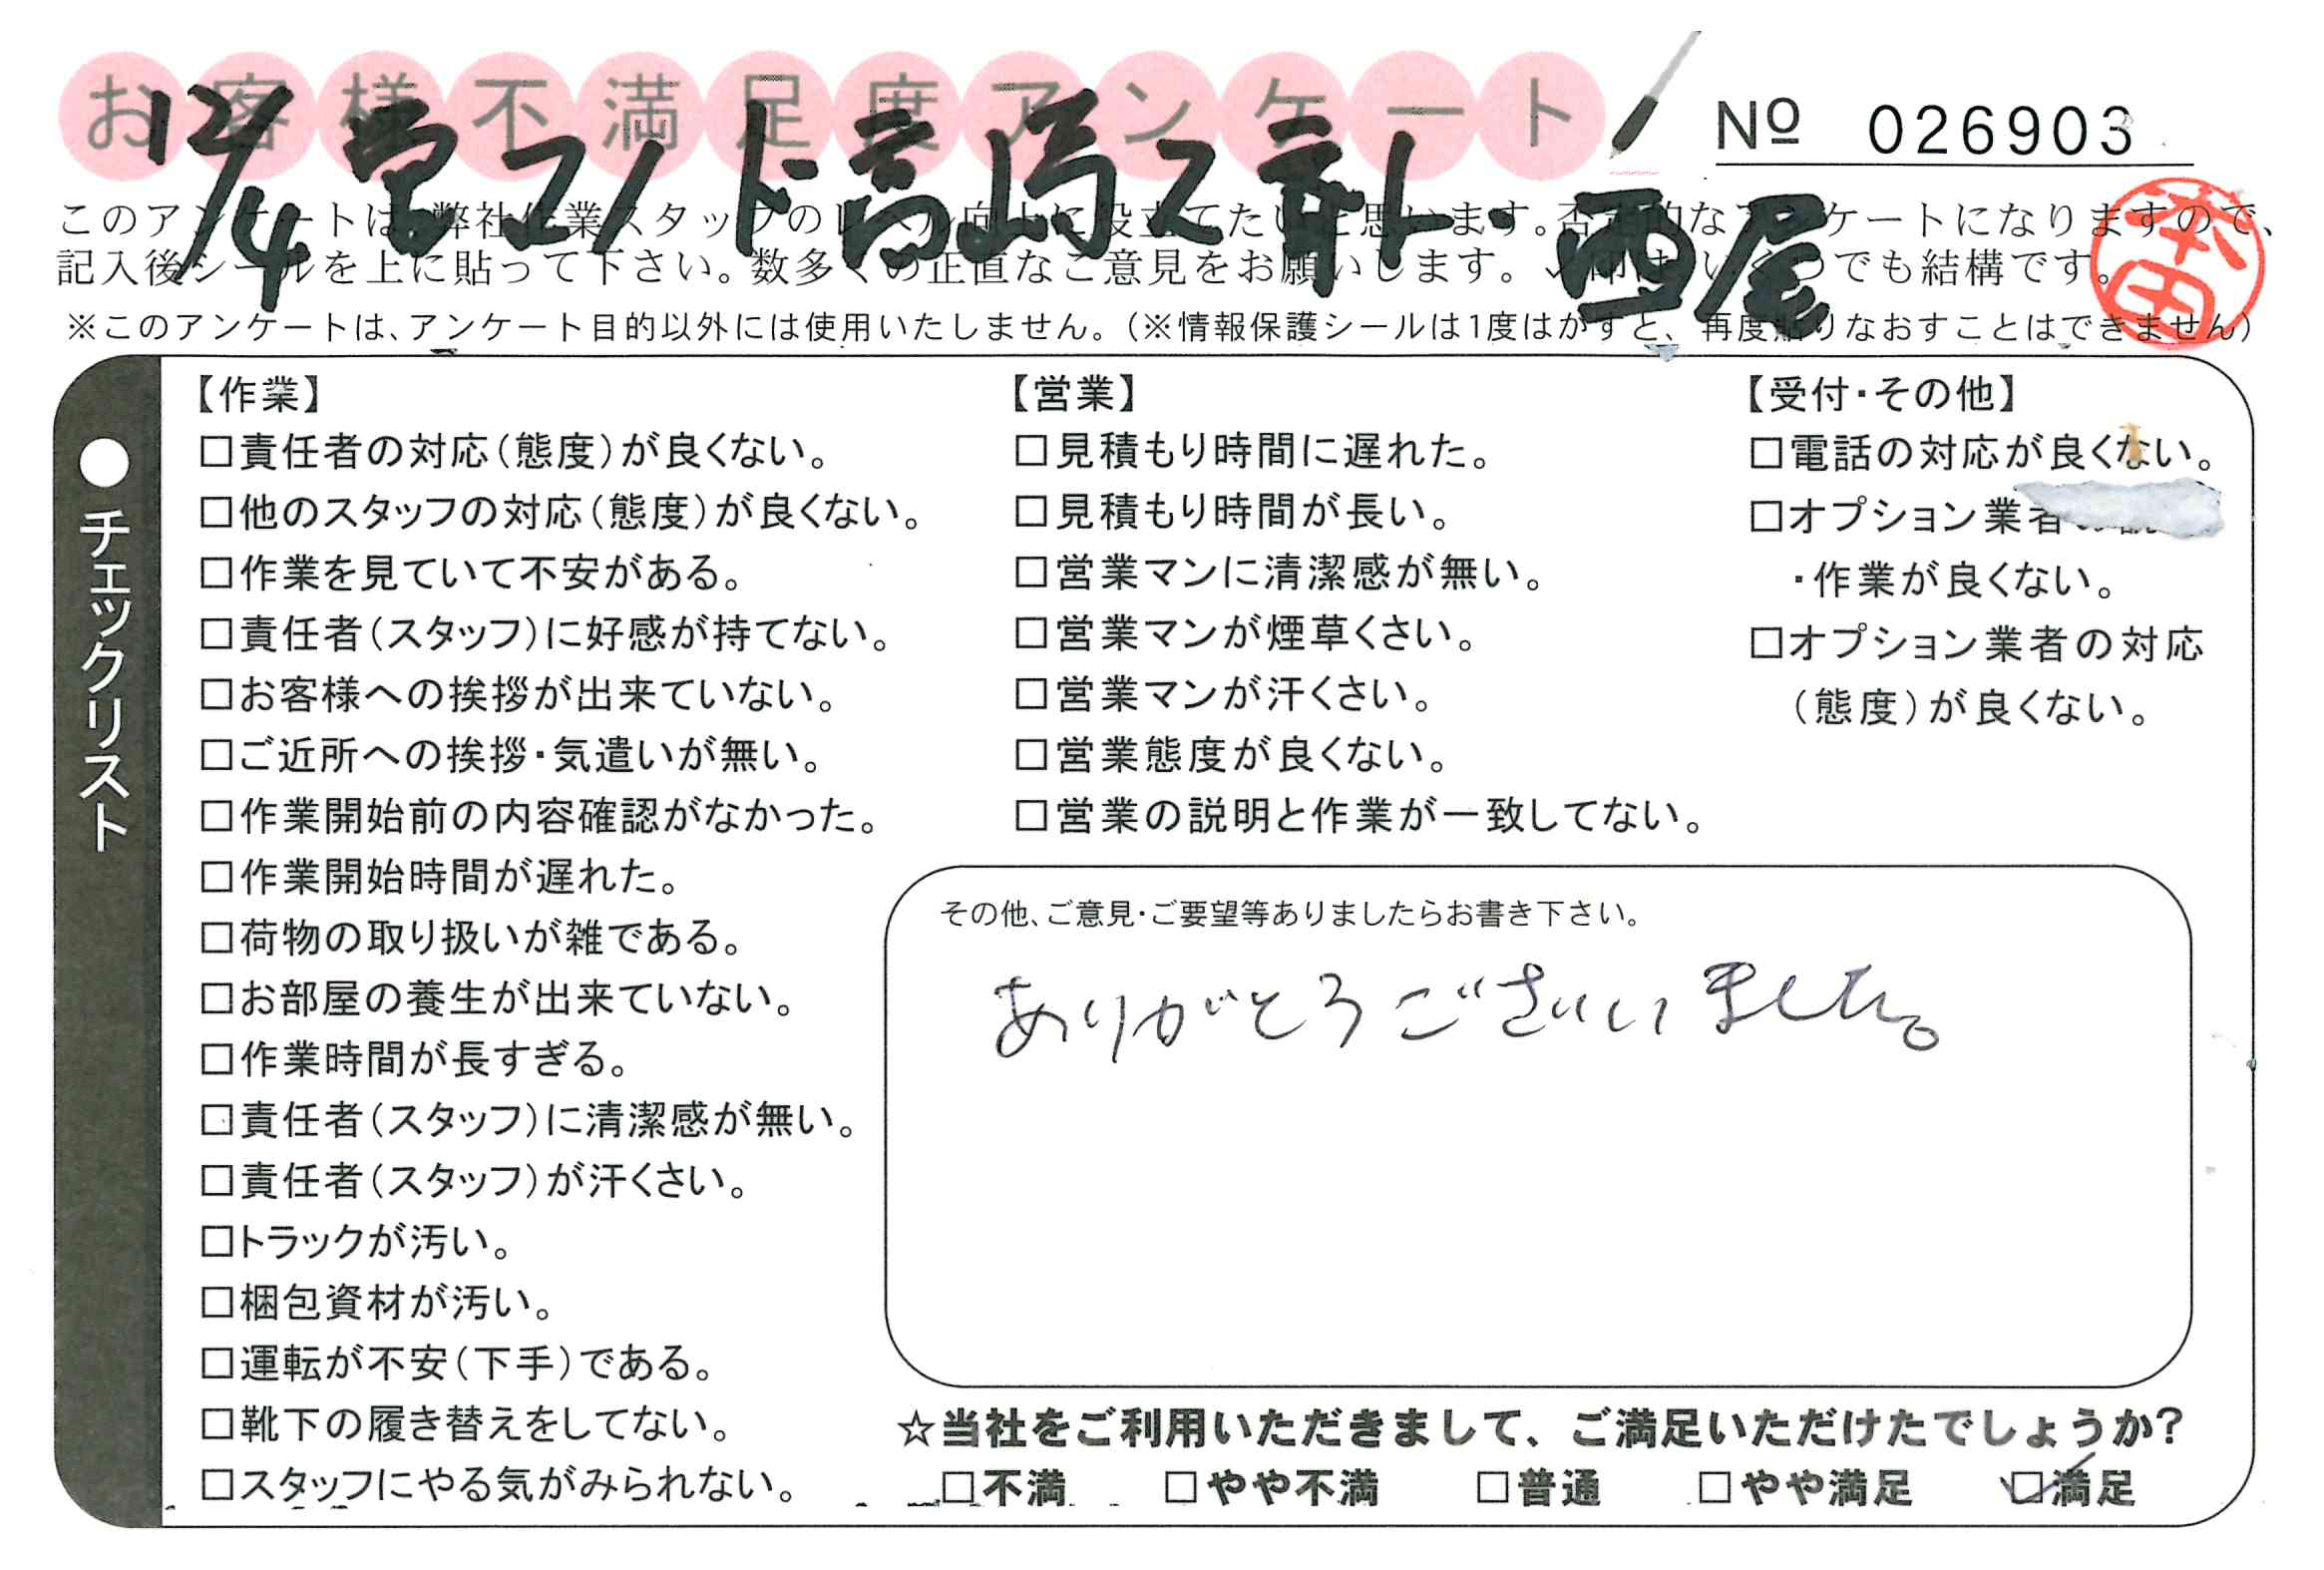 お客様不満足度アンケート
№ 026903
12/4 西尾
本田
このアンケートは、弊社作業スタッフの 向上に役立てたいと思います。否定的なアンケートになりますので、
記入後シールを上に貼って下さい。数多くの正直なご意見をお願いします。 でも結構です。
※このアンケートは、アンケート目的以外には使用いたしません。(※情報保護シールは1度はがすと、再度貼りなおすことはできません)
●チェックリスト
【作業】
□責任者の対応(態度)が良くない。
□他のスタッフの対応(態度)が良くない。
□作業を見ていて不安がある。
□責任者(スタッフ)に好感が持てない。
□お客様への挨拶が出来ていない。
□ご近所への挨拶・気遣いが無い。
□作業開始前の内容確認がなかった。
□作業開始時間が遅れた。
□荷物の取り扱いが雑である。
□お部屋の養生が出来ていない。
□作業時間が長すぎる。
□責任者(スタッフ)に清潔感が無い。
□責任者(スタッフ)が汗くさい。
□トラックが汚い。
□梱包資材が汚い。
□運転が不安(下手)である。
□靴下の履き替えをしてない。
□スタッフにやる気がみられない。
【営業】
□見積もり時間に遅れた。
□見積もり時間が長い。
□営業マンに清潔感が無い。
□営業マンが煙草くさい。
□営業マンが汗くさい。
□営業態度が良くない。
□営業の説明と作業が一致してない。
【受付・その他】
□電話の対応が良くない。
□オプション業者の
・作業が良くない。
□オプション業者の対応
(態度)が良くない。
その他、ご意見・ご要望等ありましたらお書き下さい。
ありがとうございました。
☆当社をご利用いただきまして、ご満足いただけたでしょうか?
□不満 □やや不満 □普通 □やや満足 ☑満足